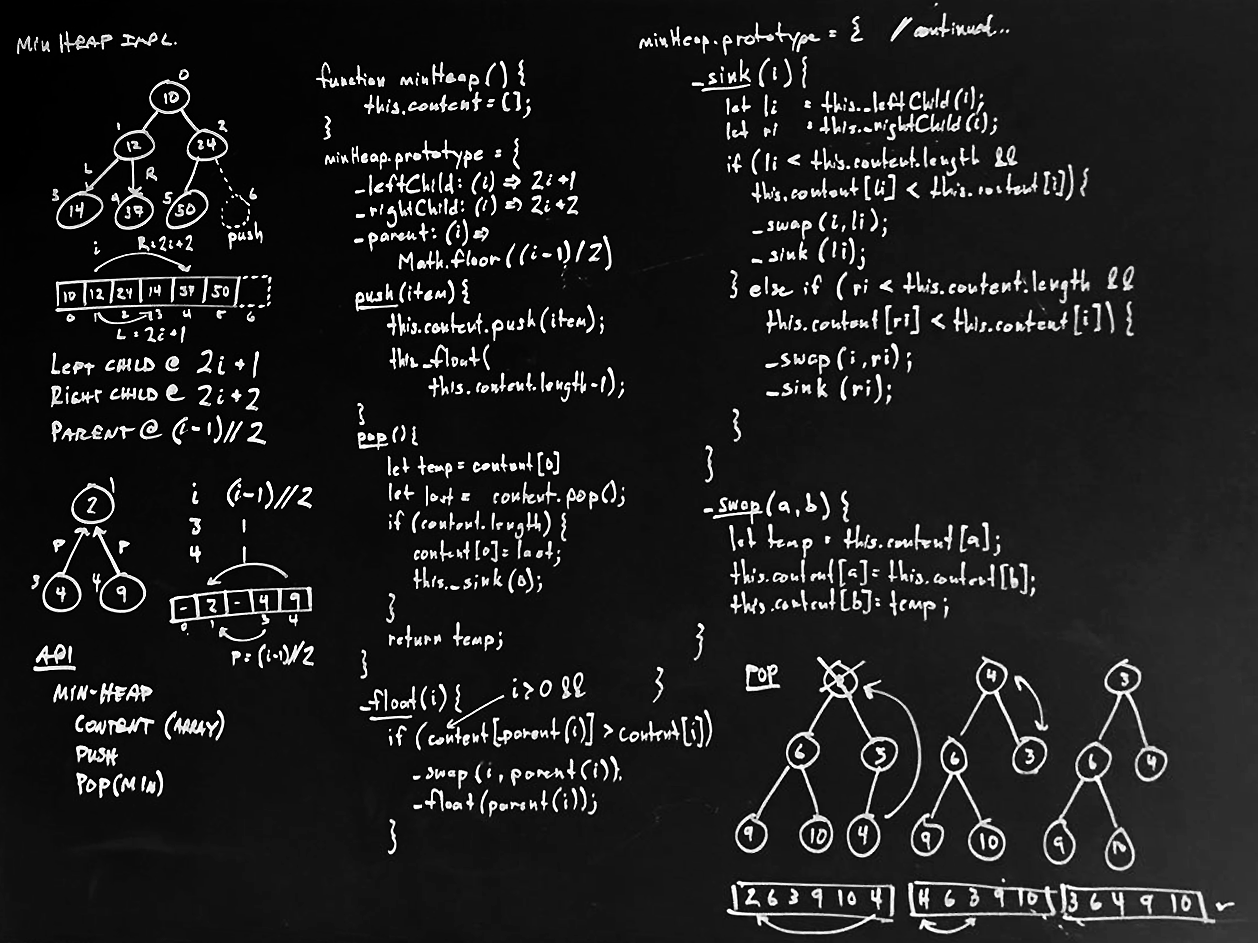 MIN HEAP IMPL.
0
10
1
2
12
24
L
R
3
4
5
6
14
37
50
push
i
R=2i+2
10 12 24 14 37 50
0 1 2 3 4 5 6
L = 2i+1
LEFT CHILD @ 2i+1
RIGHT CHILD @ 2i+2
PARENT @ (i-1)//2
1
2
P
P
3
4
4
9
i (i-1)//2
3 1
4 1
- 2 - 4 9
0 1 3 4
P = (i-1)//2
API
MIN-HEAP
CONTENT (ARRAY)
PUSH
POP(MIN)
function minHeap() {
this.content = [];
}
minHeap.prototype = {
_leftChild: (i) => 2i+1
_rightChild: (i) => 2i+2
_parent: (i) =>
Math.floor((i-1)/2)
push(item) {
this.content.push(item);
this._float(
this.content.length-1);
}
pop() {
let temp = content[0]
let last = content.pop();
if (content.length) {
content[0] = last;
this._sink(0);
}
return temp;
}
_float(i) {
i>0 &&
}
if (content[_parent(i)] > content[i])
_swap(i, parent(i));
_float(parent(i));
}
minHeap.prototype = { // continued...
_sink(i) {
let li = this._leftChild(i);
let ri = this._rightChild(i);
if (li < this.content.length &&
this.content[li] < this.content[i]) {
_swap(i, li);
_sink(li);
} else if (ri < this.content.length &&
this.content[ri] < this.content[i]) {
_swap(i, ri);
_sink(ri);
}
}
_swap(a, b) {
let temp = this.content[a];
this.content[a] = this.content[b];
this.content[b] = temp;
}
POP
6
3
9
10
4
4
6
3
9
10
3
6
4
9
10
2 6 3 9 10 4
4 6 3 9 10
3 6 4 9 10